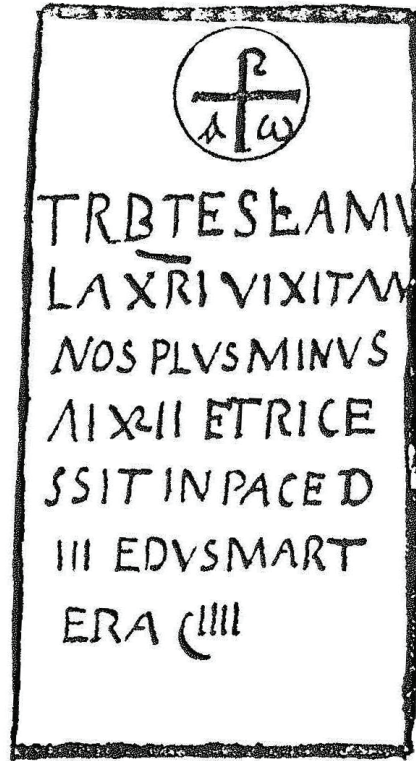 A ω
TRBTES FAMV
LA XRI VIXIT AN
NOS PLVS MINVS
ETRICE
SSIT IN PACE D
III EDVS MART
ERA